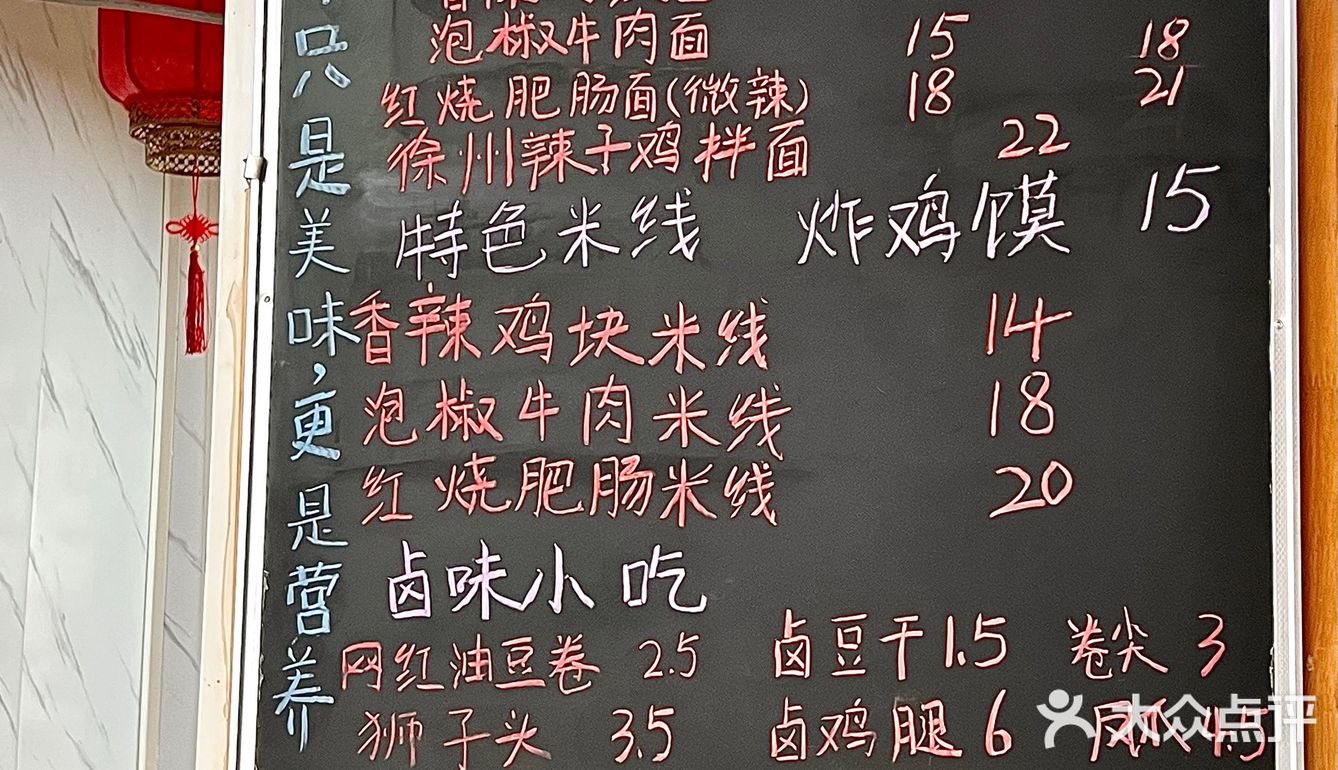 泡椒牛肉面 15 18
红烧肥肠面(微辣) 18 21
徐州辣子鸡拌面 22
特色米线 炸鸡馍 15
香辣鸡块米线 14
泡椒牛肉米线 18
红烧肥肠米线 20
卤味小吃
网红油豆卷 2.5 卤豆干 1.5 卷尖 3
狮子头 3.5 卤鸡腿 6
只是美味,更是营养
大众点评